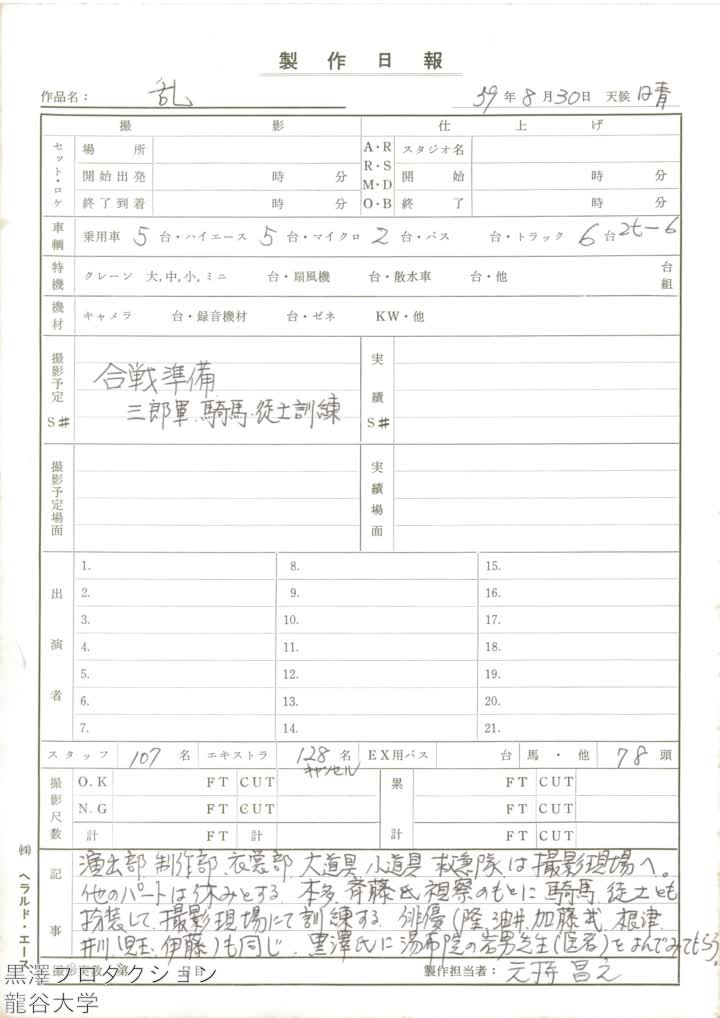 製作日報
作品名： 乱 59年8月30日 天候 晴
撮影 仕上げ
セット・ロケ 場所 A・R スタジオ名
開始出発 時 分 R・S 開始 時 分
M・D
終了到着 時 分 O・B 終了 時 分
車輌 乗用車 5 台・ハイエース 5 台・マイクロ 2 台・バス 台・トラック 6 台 2t－6
特機 クレーン 大,中,小,ミニ 台・扇風機 台・散水車 台・他 台組
機材 キャメラ 台・録音機材 台・ゼネ KW・他
撮影予定 S# 実績 S#
合戦準備
三郎軍 騎馬 徒士訓練
撮影予定場面 実績場面
出演者 1. 8. 15.
2. 9. 16.
3. 10. 17.
4. 11. 18.
5. 12. 19.
6. 13. 20.
7. 14. 21.
スタッフ 107 名 エキストラ 128 名 EX用バス 台 馬・他 78 頭
キャンセル
撮影尺数 O.K FT CUT 累計 FT CUT
N.G FT CUT FT CUT
計 FT 計 FT CUT
記事
演出部 制作部 衣裳部 大道具 小道具 救急隊は撮影現場へ。
他のパートは休みとする 本多 斉藤氏視察のもとに 騎馬 徒士とも
扮装して 撮影現場にて訓練する 俳優（隆 油井 加藤武 根津
井川 児玉 伊藤）も同じ 黒澤氏に湯布院の岩男先生（医者）をよんでみてもらう。
撮影実数 第 日目 製作担当者：
㈱ ヘラルド・エース
黒澤プロダクション
龍谷大学